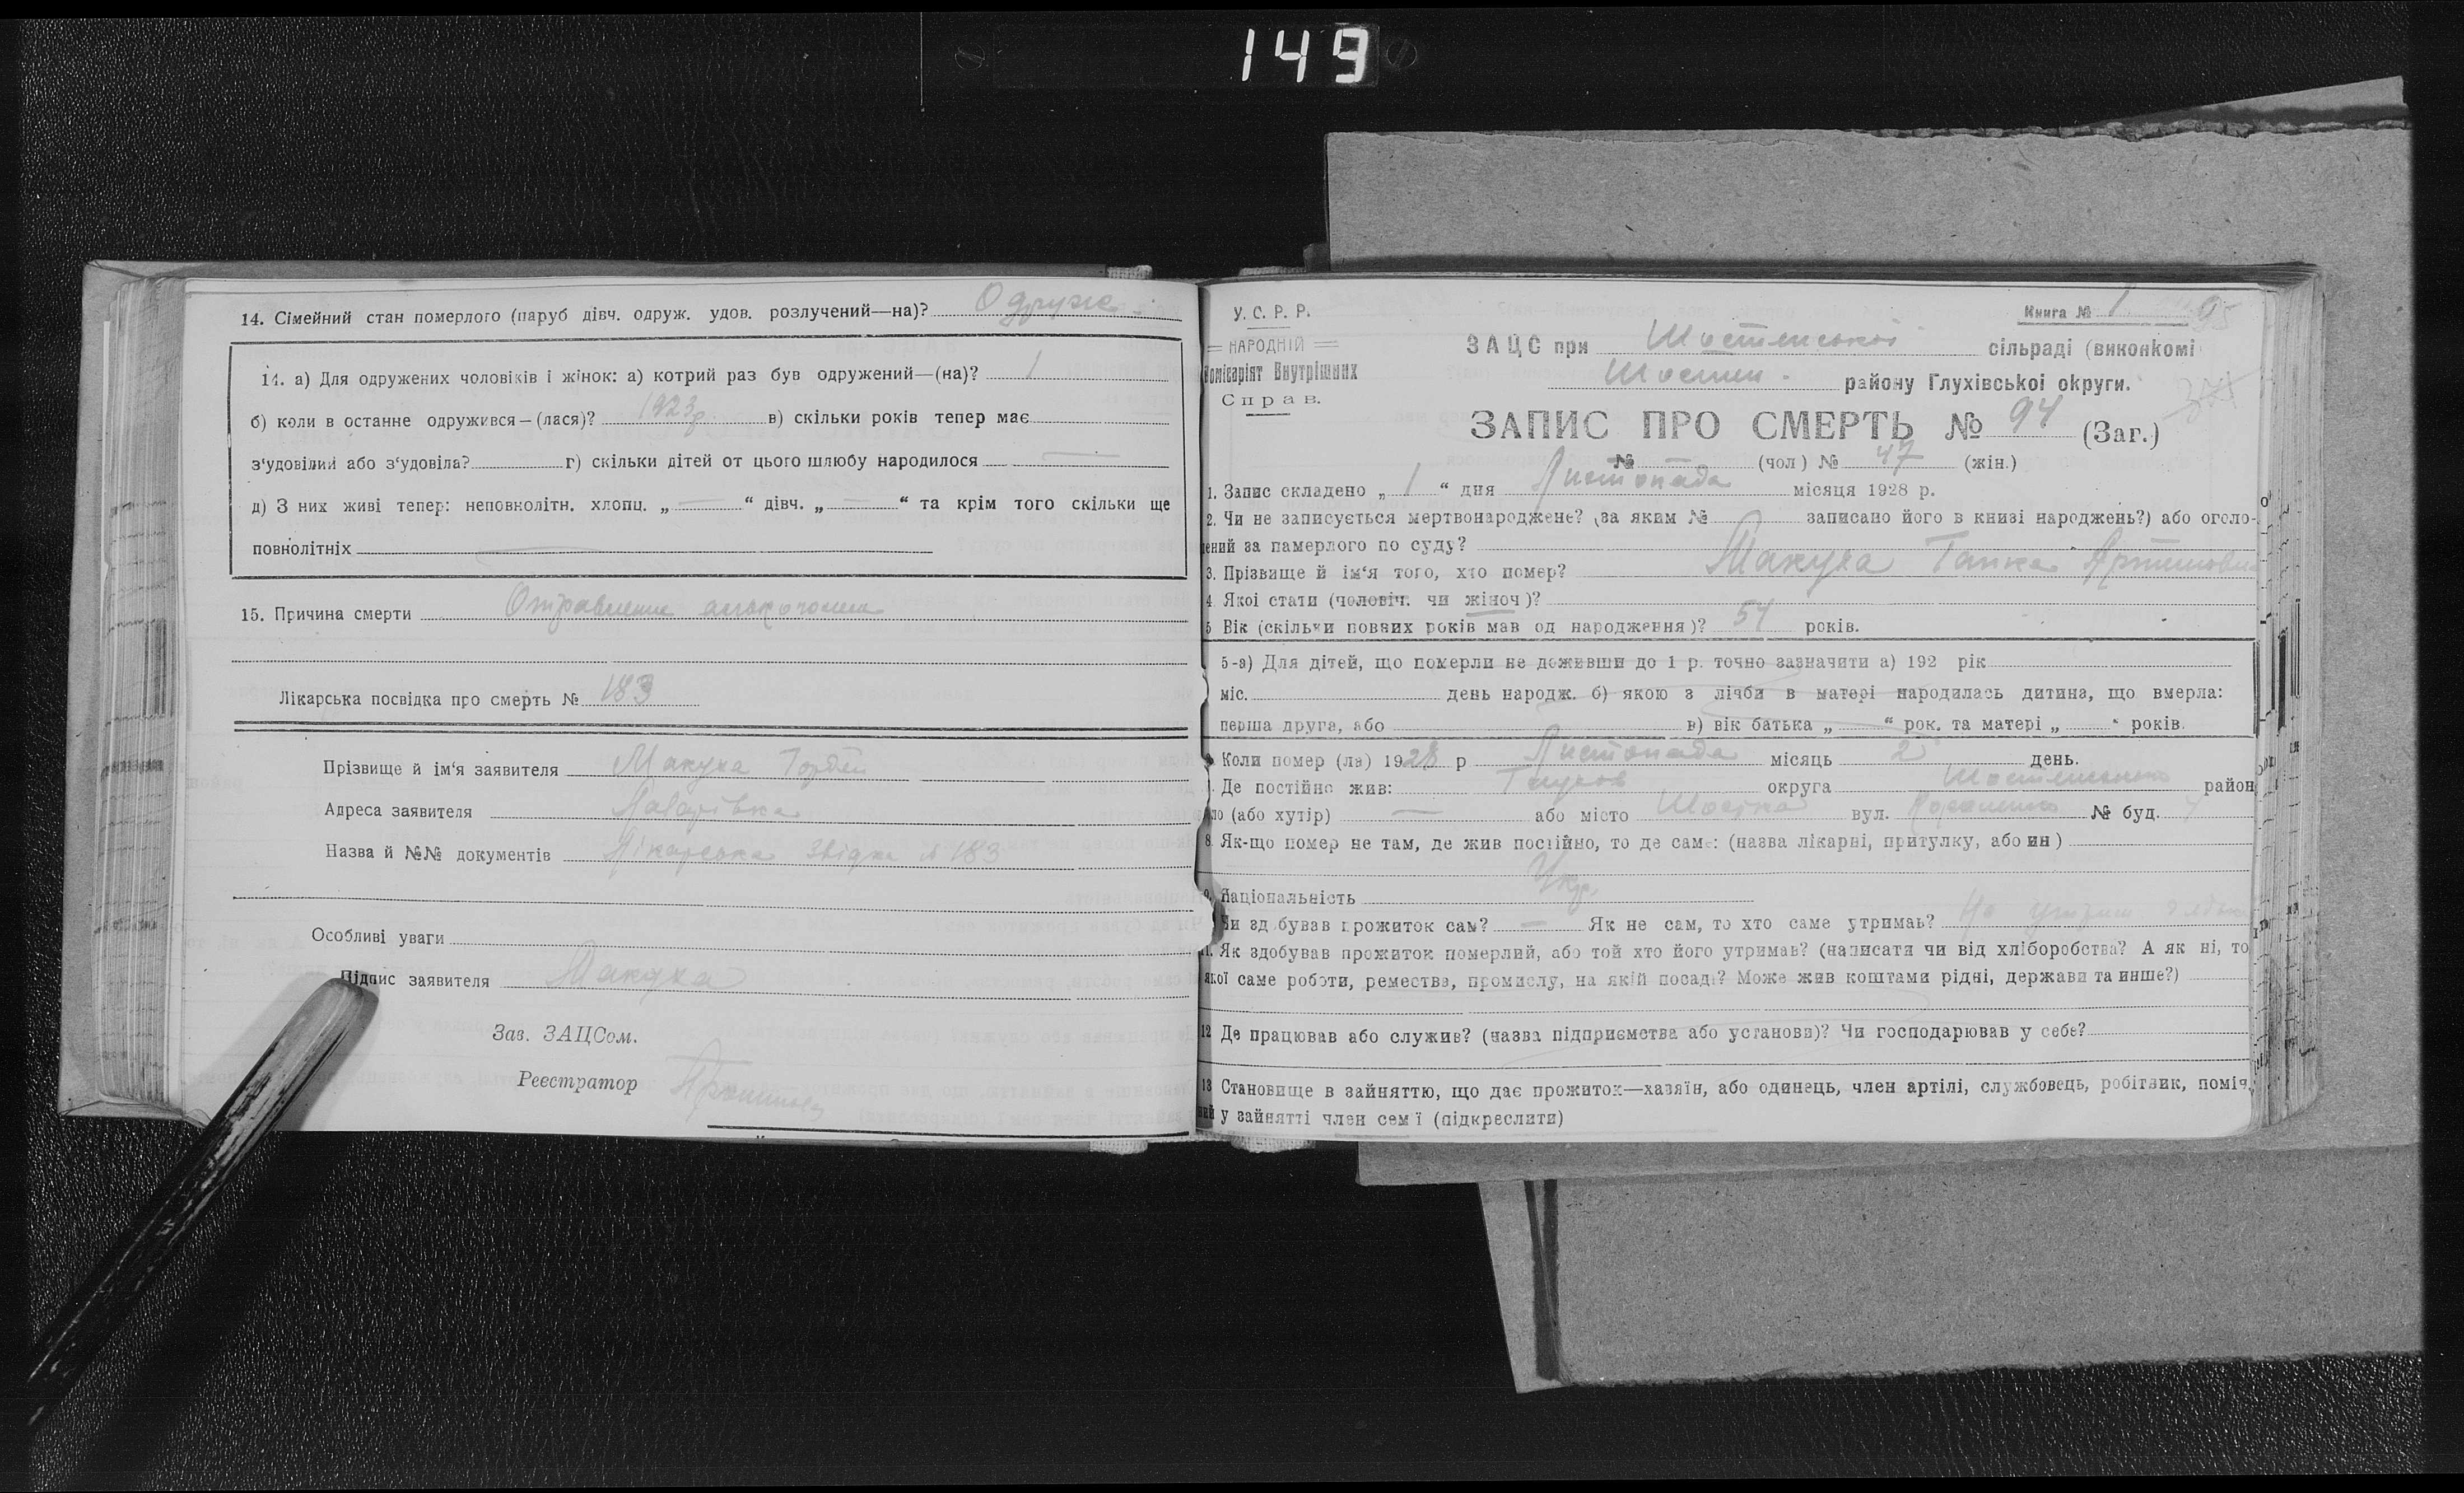 149
14. Сімейний стан померлого (паруб дівч. одруж. удов. розлучений—на)? Одруже
14. а) Для одружених чоловіків і жінок: а) котрий раз був одружений—(на)? 1
б) коли в останне одружився—(лася)? 1923р. в) скільки років тепер має
з'удовілий або з'удовіла? г) скільки дітей от цього шлюбу народилося —
д) З них живі тепер: неповнолітн. хлопц. „ — “ дівч. „ — “ та крім того скільки ще
повнолітніх —
15. Причина смерти Отравление алькоголем
Лікарська посвідка про смерть № 183
Прізвище й ім'я заявителя Макуха Гордій
Адреса заявителя
Назва й №№ документів Лікарська звідка № 183
Особливі уваги
Підпис заявителя Макуха
Зав. ЗАЦСом.
Реєстратор
У. С. Р. Р.
НАРОДНІЙ
Комісаріят Внутрішних
Справ.
Книга № 1 95
ЗАЦС при Шостенської сільраді (виконкомі
Шостен. району Глухівської округи.
ЗАПИС ПРО СМЕРТЬ № 94 (Заг.)
№ — (чол) № 47 (жін.)
1. Запис складено „ 1 “ дня Листопада місяця 1928 р.
2. Чи не записується мертвонароджене? (за яким № записано його в книзі народжень?) або оголо-
шений за памерлого по суду?
3. Прізвище й ім'я того, хто помер? Макуха Ганна
4. Якої стати (чоловіч. чи жіноч)?
5 Вік (скільки повних років мав од народження)? 54 років.
5-а) Для дітей, що померли не доживши до 1 р. точно зазначити а) 192 рік
міс. день народж. б) якою з лічби в матері народилась дитина, що вмерла:
перша друга, або в) вік батька „ — “ рок. та матері „ “ років.
Коли помер (ла) 1928 р Листопада місяць день.
Де постійно жив: округа Шостенського район
(або хутір) — або місто Шостка вул. № буд.
8. Як-що помер не там, де жив постійно, то де саме: (назва лікарні, притулку, або ин)
9. Національність Укр.
Чи здобував прожиток сам? — Як не сам, то хто саме утримав?
11. Як здобував прожиток померлий, або той хто його утримав? (написати чи від хліборобства? А як ні, то
якої саме роботи, ремества, промислу, на якій посаді? Може жив коштами рідні, держави та инше?)
12 Де працював або служив? (назва підприємства або установи)? Чи господарював у себе?
13 Становище в зайняттю, що дає прожиток—хазяїн, або одинець, член артілі, службовець, робітник, поміч.
ний у зайнятті член сем'ї (підкреслити)